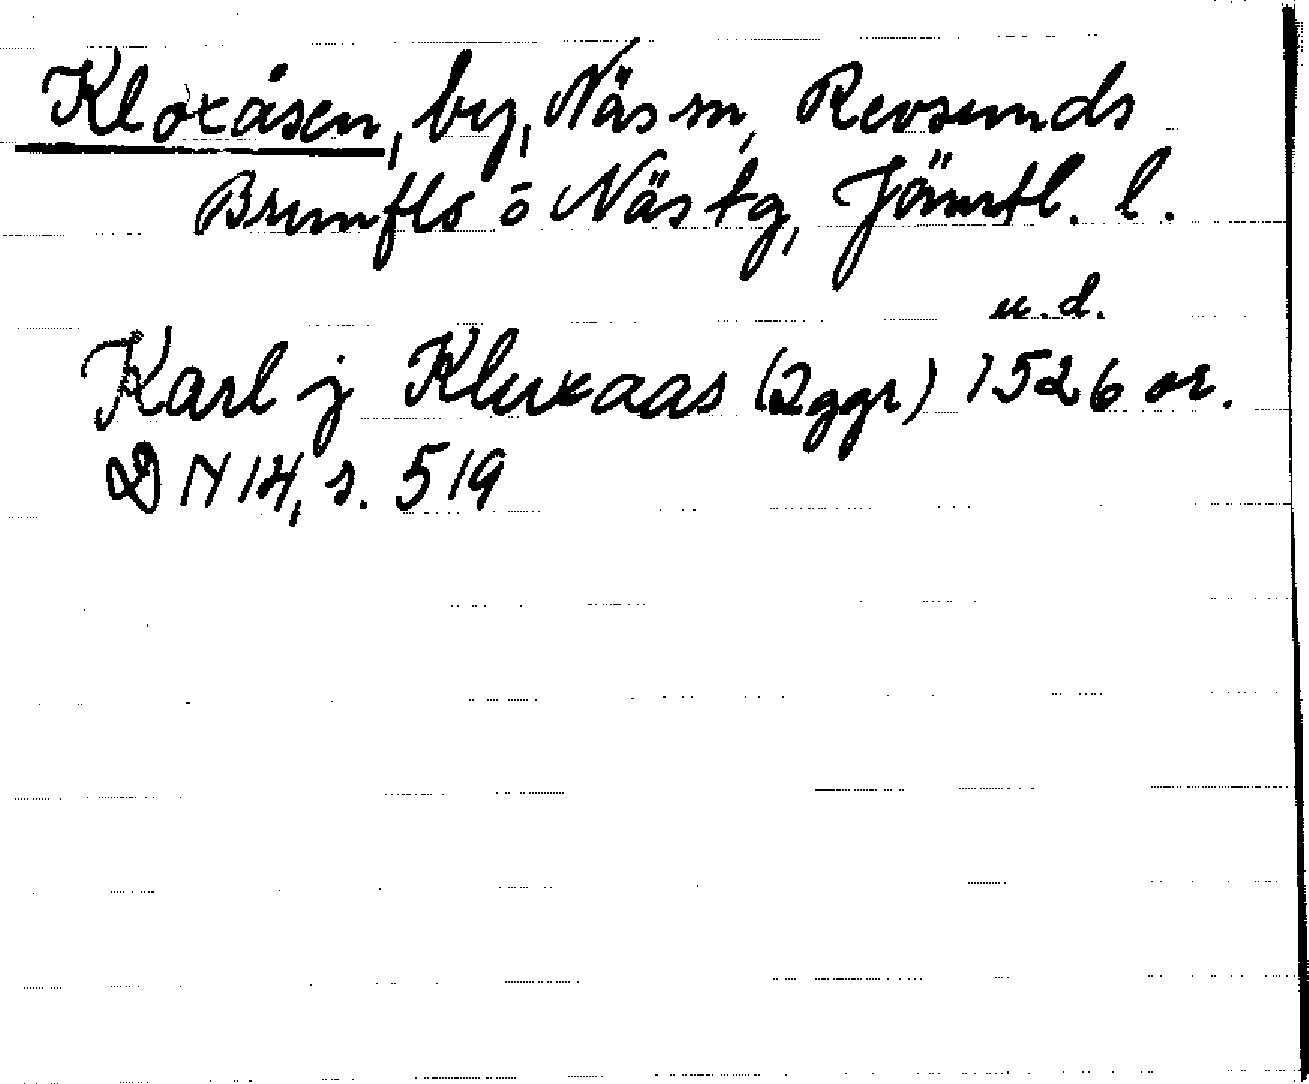 Kloxåsen, by, Näs sn, Revsunds
Brunflo o Näs tg, Jämtl. l.
u.d.
Karl j Kluxaas (2 ggr) 1526 or.
DN 14, s. 519